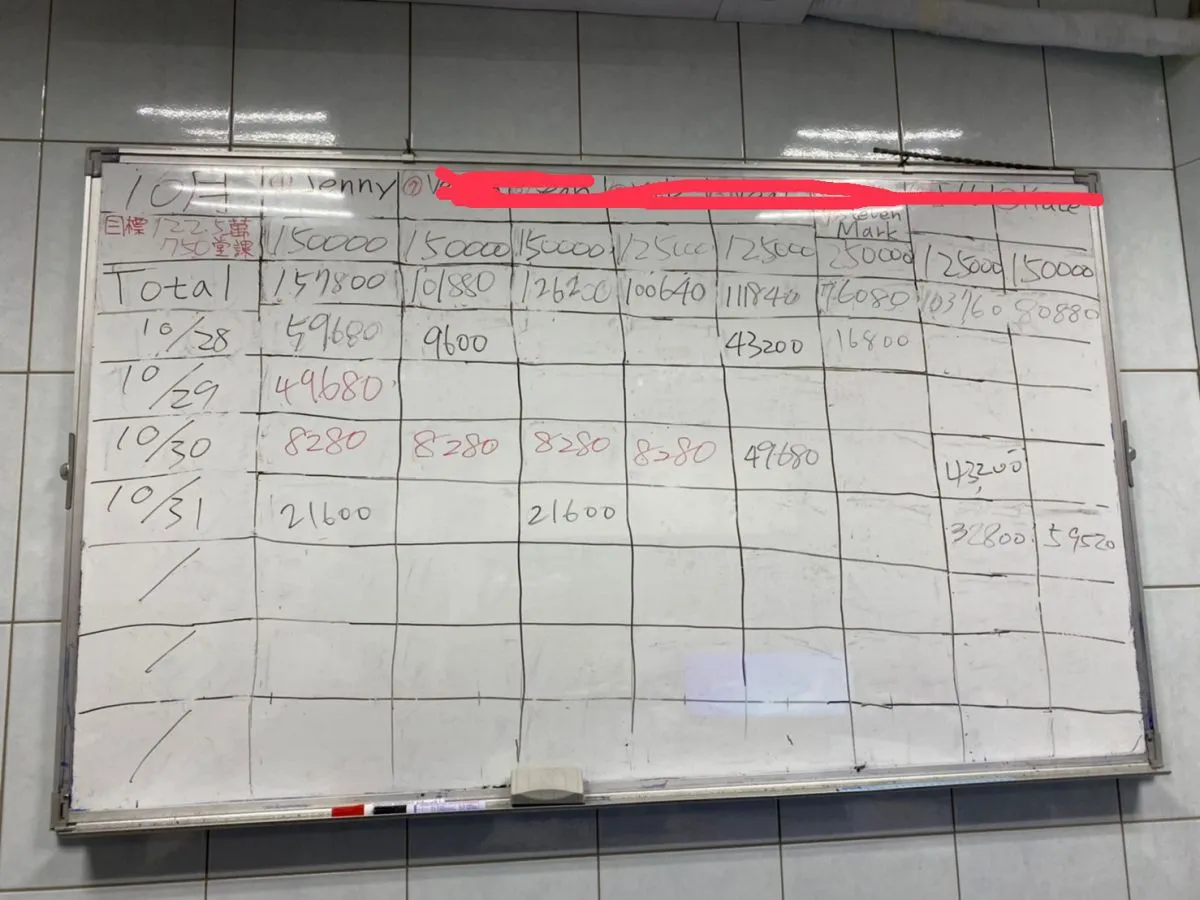 10月 Jenny
目標 122.5萬
750堂課
Steven
Mark
150000 150000 150000 125000 125000 250000 125000 150000
Total 157800 101880 126200 100640 111840 76080 103760 80880
10/28 59680 9600 43200 16800
10/29 49680
10/30 8280 8280 8280 8280 49680 43200
10/31 21600 21600 32800 59520
/
/
/